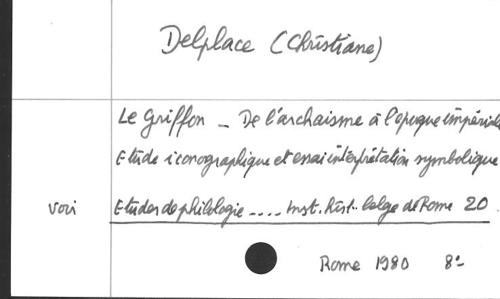 Delplace (Christiane)
Le Griffon _ De l'archaisme à l'epoque impériale
Etude iconographique et essai interprétation symbolique
voir Etudes de philologie .... Inst. hist. belge de Rome 20
Rome 1980 8°